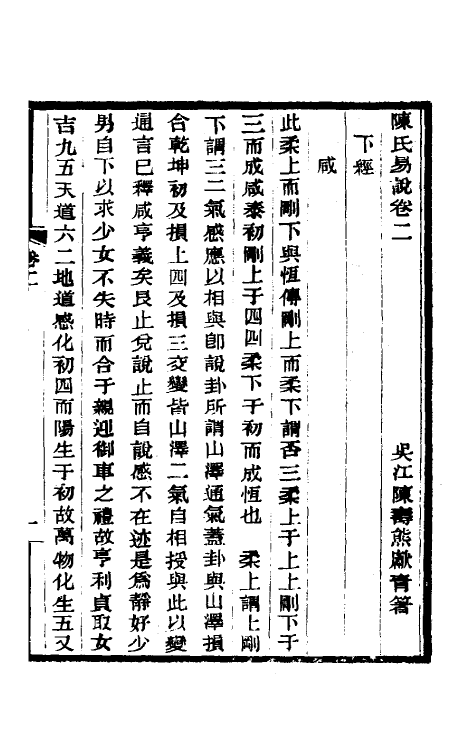 陳氏易說卷二
吳江陳壽熊獻青箸
下經
咸
此柔上而剛下與恆傳剛上而柔下謂否三柔上于上上剛下于
三而成咸泰初剛上于四四柔下于初而成恆也　柔上謂上剛
下謂三二氣感應以相與卽說卦所謂山澤通氣蓋卦與山澤損
合乾坤初及損上四及損三交變皆山澤二氣自相授與此以變
通言已釋咸亨義矣艮止兌說止而自說感不在迹是爲靜好少
男自下以求少女不失時而合于親迎御車之禮故亨利貞取女
吉九五天道六二地道感化初四而陽生于初故萬物化生五又
卷二
一